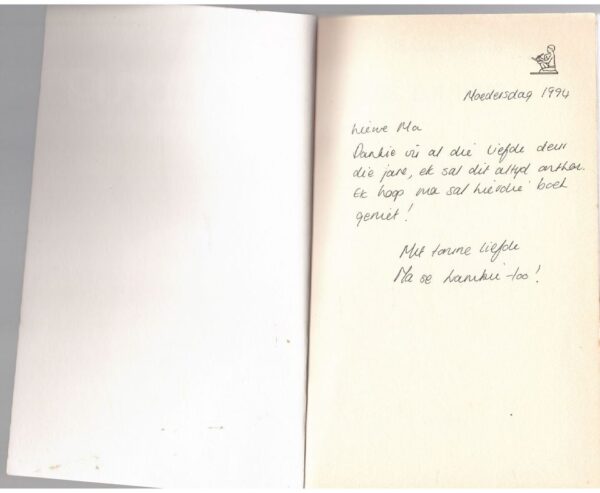 Moedersdag 1994
Liewe Ma
Dankie vir al die liefde deur
die jare, ek sal dit altyd onthou.
Ek hoop ma sal hierdie boek
geniet!
Met tonne liefde
Ma se